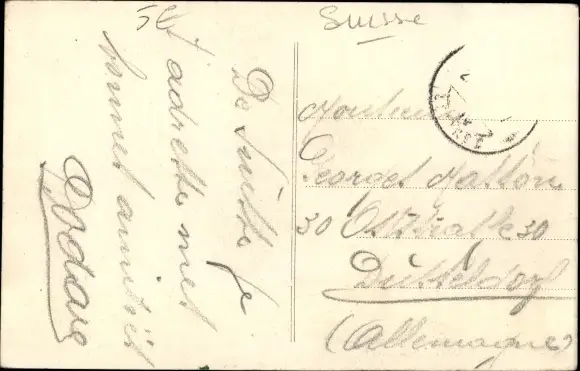 Suisse
De Suisse je
t'adresse mes
bonnes amitiés
Monsieur
Georges
30 Oststrasse 30
Düsseldorf
(Allemagne)